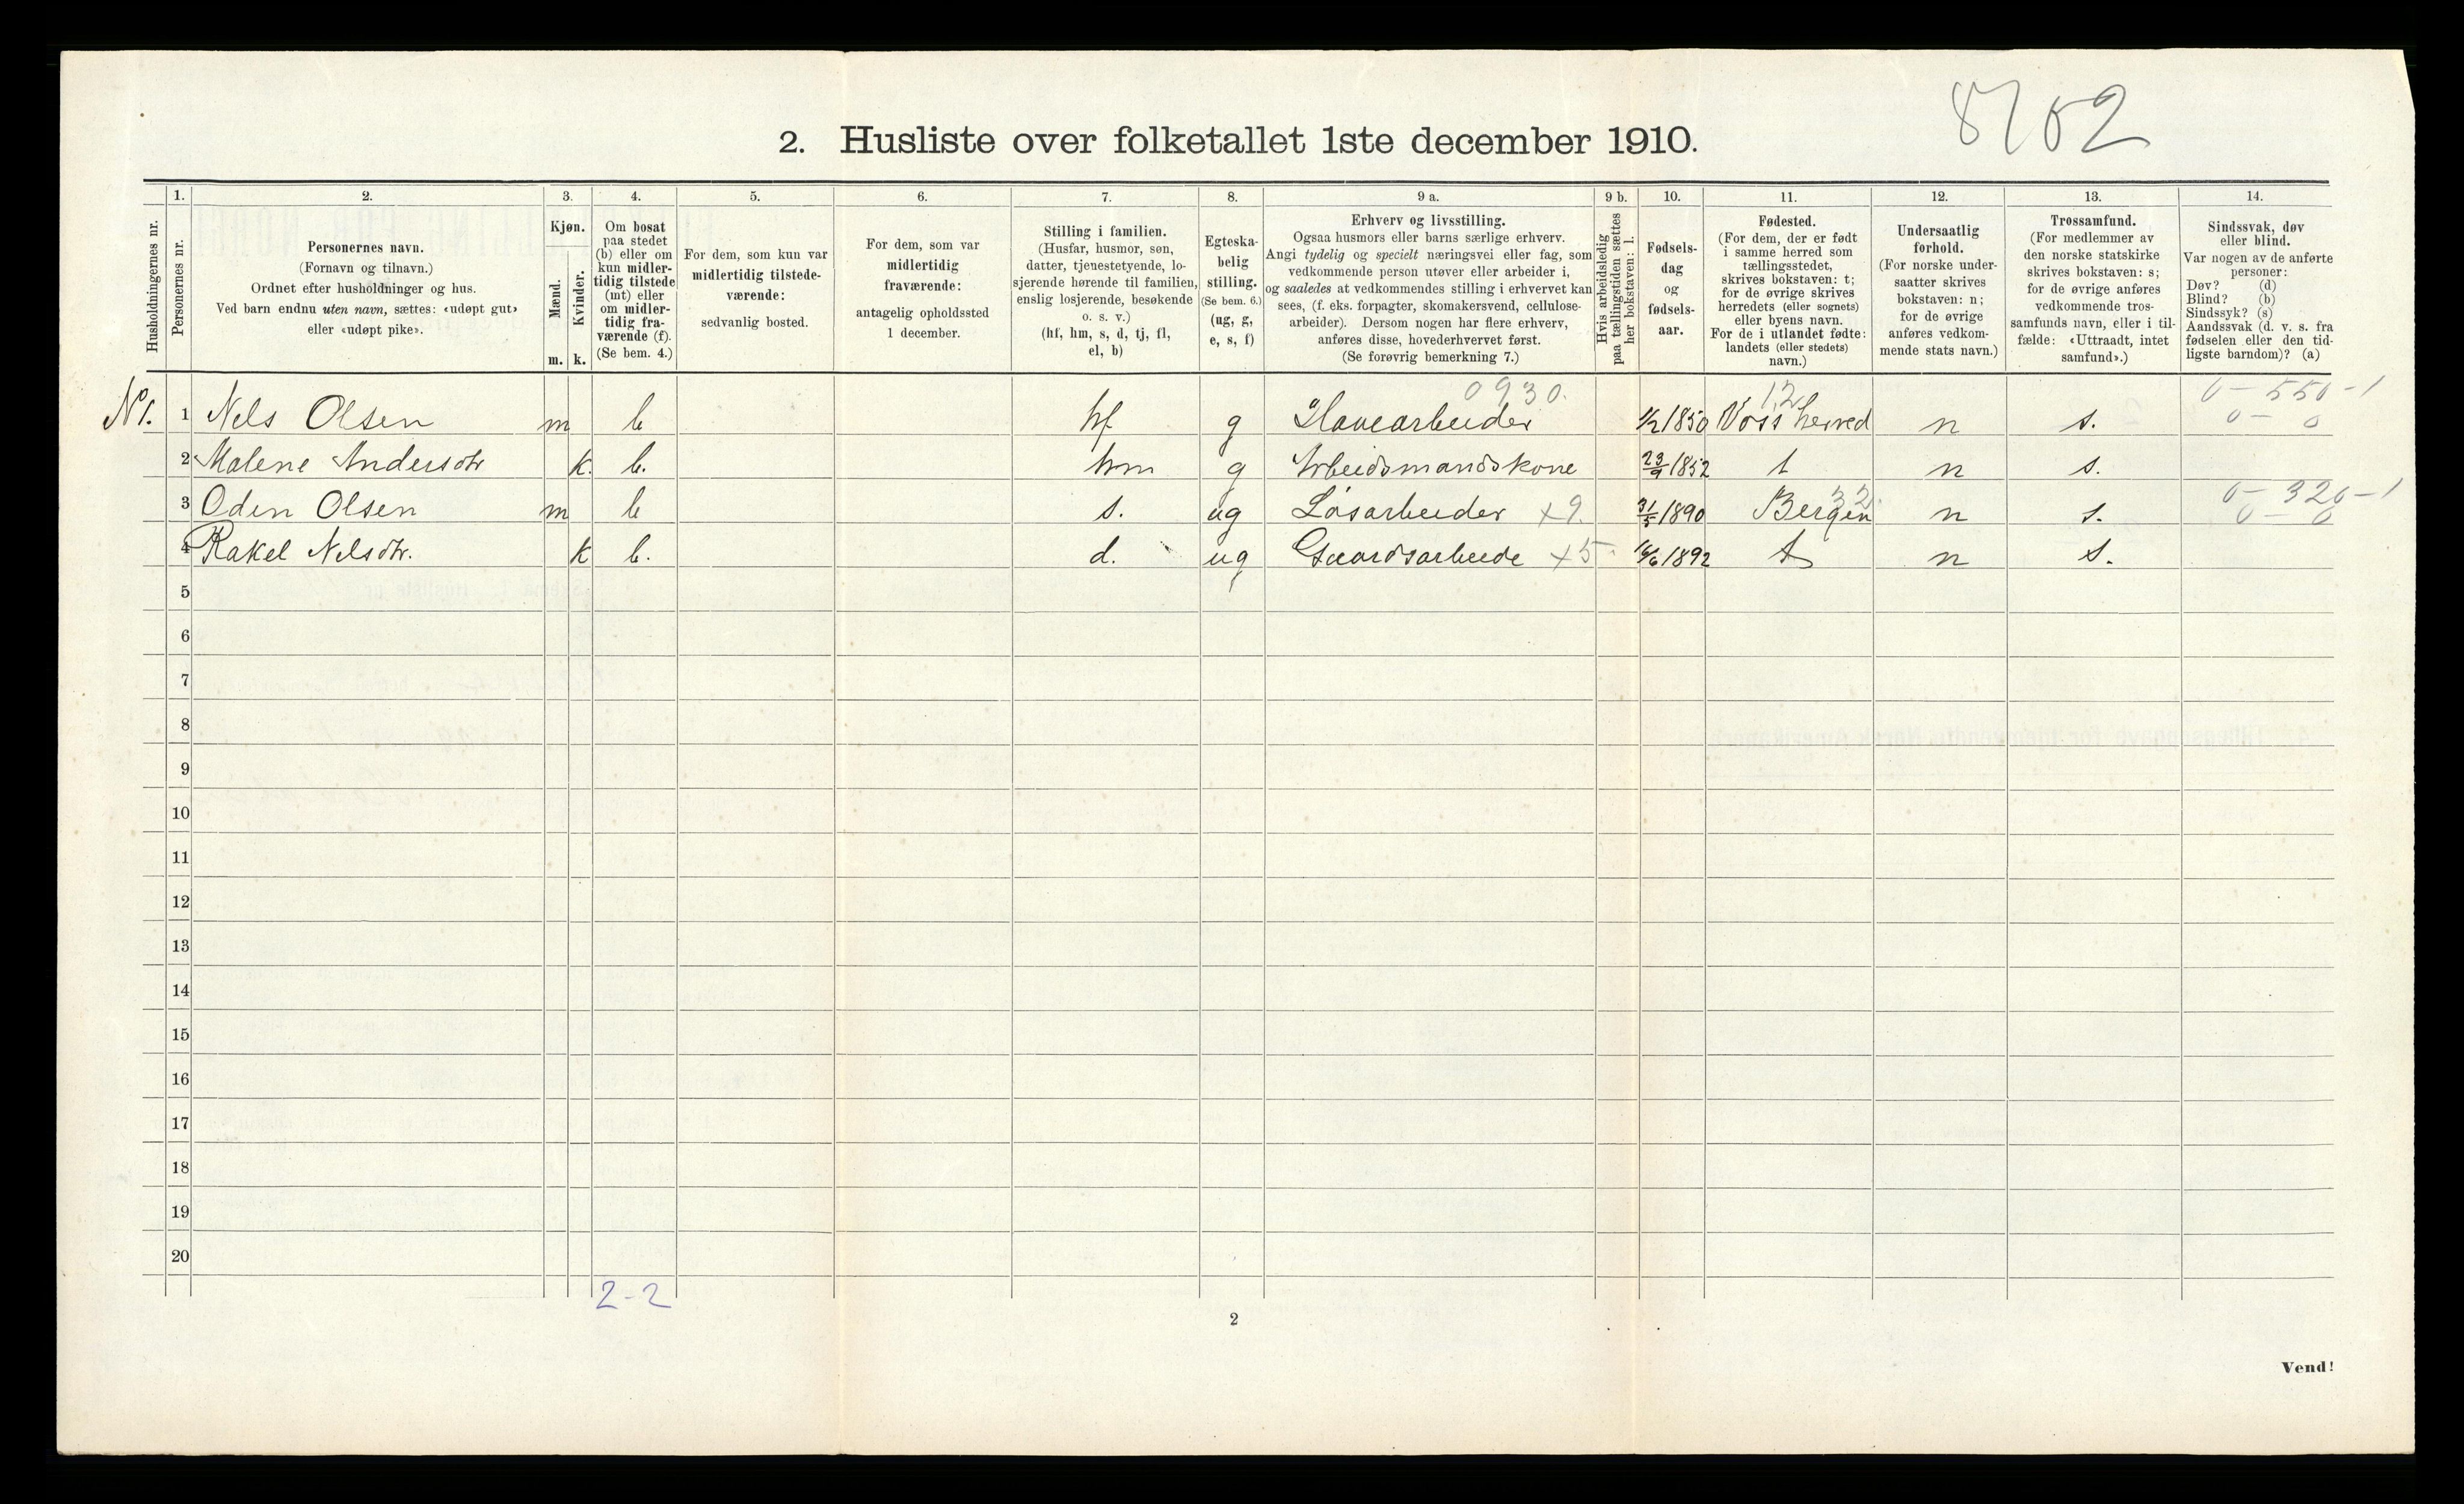 8762
2. Husliste over folketallet 1ste december 1910.
Husholdningernes nr.
1.
Personernes nr.
2.
Personernes navn.
(Fornavn og tilnavn.)
Ordnet efter husholdninger og hus.
Ved barn endnu uten navn, sættes: «udøpt gut»
eller «udøpt pike».
3.
Kjøn.
Mænd.
Kvinder.
m. k.
4.
Om bosat
paa stedet
(b) eller om
kun midler-
tidig tilstede
(mt) eller
om midler-
tidig fra-
værende (f).
(Se bem. 4.)
5.
For dem, som kun var
midlertidig tilstede-
værende:
sedvanlig bosted.
6.
For dem, som var
midlertidig
fraværende:
antagelig opholdssted
1 december.
7.
Stilling i familien.
(Husfar, husmor, søn,
datter, tjenestetyende, lo-
sjerende hørende til familien,
enslig losjerende, besøkende
o. s. v.)
(hf, hm, s, d, tj, fl,
el, b)
8.
Egteska-
belig
stilling.
(Se bem. 6.)
(ug, g,
e, s, f)
9 a.
Erhverv og livsstilling.
Ogsaa husmors eller barns særlige erhverv.
Angi tydelig og specielt næringsvei eller fag, som
vedkommende person utøver eller arbeider i,
og saaledes at vedkommendes stilling i erhvervet kan
sees, (f. eks. forpagter, skomakersvend, cellulose-
arbeider). Dersom nogen har flere erhverv,
anføres disse, hovederhvervet først.
(Se forøvrig bemerkning 7.)
9 b.
Hvis arbeidsledig
paa tællingstiden sættes
her bokstaven: l.
10.
Fødsels-
dag
og
fødsels-
aar.
11.
Fødested.
(For dem, der er født
i samme herred som
tællingsstedet,
skrives bokstaven: t;
for de øvrige skrives
herredets (eller sognets)
eller byens navn.
For de i utlandet fødte:
landets (eller stedets)
navn.)
12.
Undersaatlig
forhold.
(For norske under-
saatter skrives
bokstaven: n;
for de øvrige
anføres vedkom-
mende stats navn.)
13.
Trossamfund.
(For medlemmer av
den norske statskirke
skrives bokstaven: s;
for de øvrige anføres
vedkommende tros-
samfunds navn, eller i til-
fælde: «Uttraadt, intet
samfund».)
14.
Sindssvak, døv
eller blind.
Var nogen av de anførte
personer:
Døv? (d)
Blind? (b)
Sindssyk? (s)
Aandssvak (d. v. s. fra
fødselen eller den tid-
ligste barndom)? (a)
0930. 12 0-550-1
No 1. 1 Nels Olsen m b hf g Havearbeider 1/2 1850 Voss herred n s. 0-0
2 Malene Andersdtr k. b. hm g Arbeidsmandskone 23/9 1852 t n s.
32. 0-320-1
3 Oden Olsen m b s. ug Løsarbeider x9. 31/5 1890 Bergen n s. 0-0
4 Rakel Nelsdtr. k b. d. ug Gaardsarbeide x5 16/6 1892 t n s.
5
6
7
8
9
10
11
12
13
14
15
16
17
18
19
20
2-2
2
Vend!